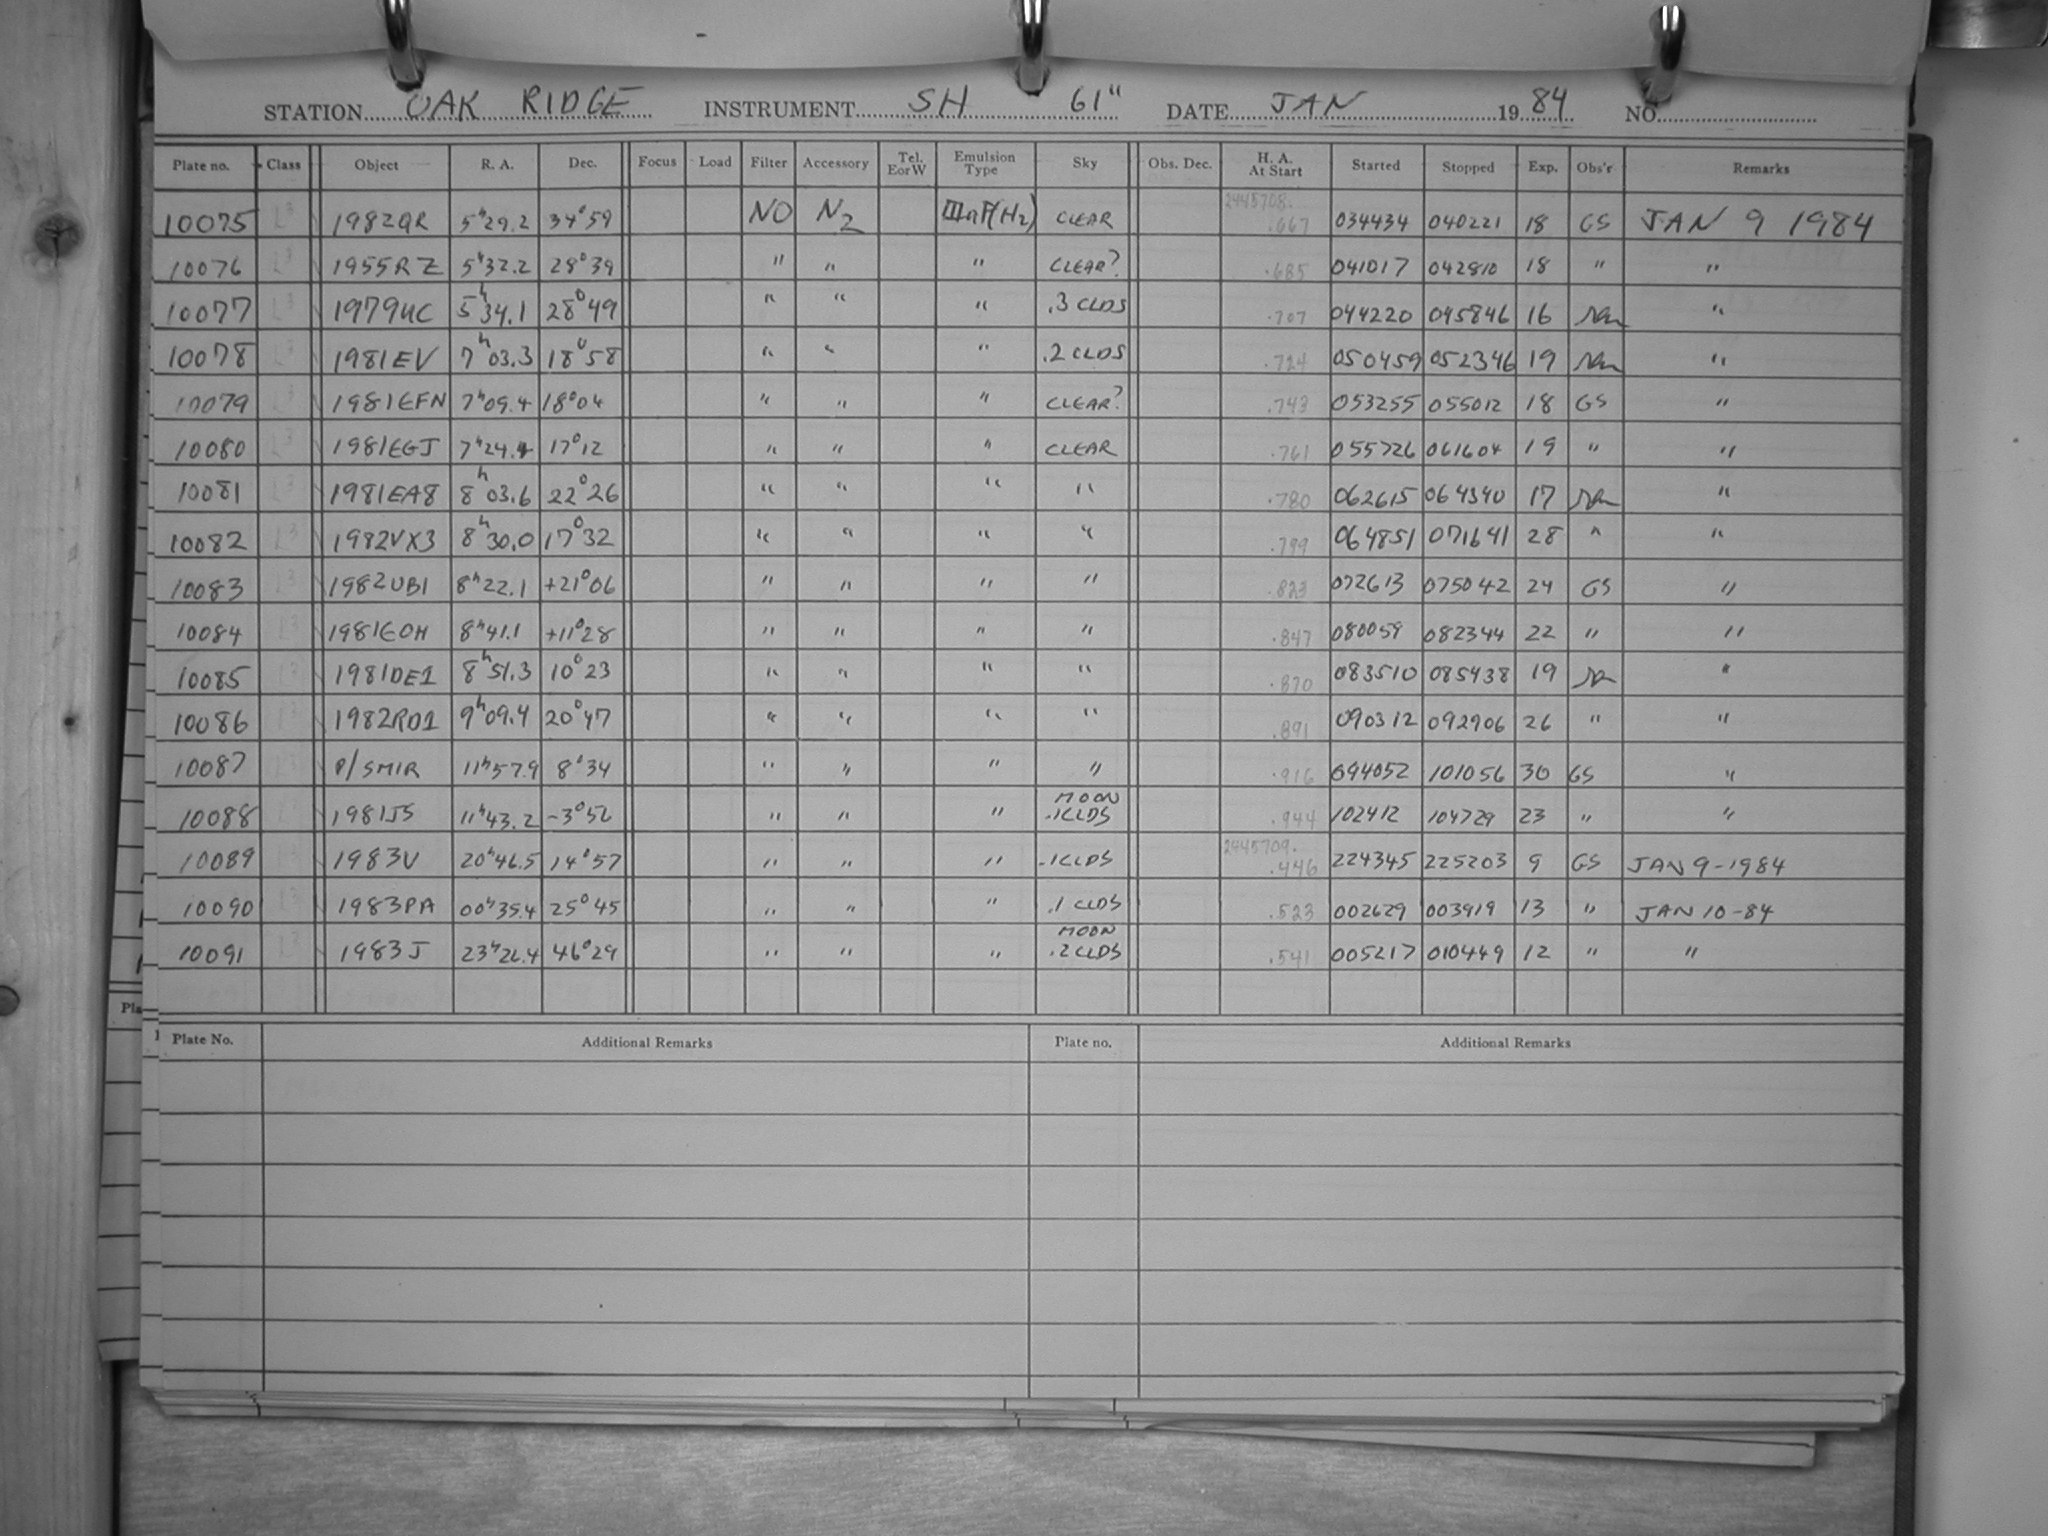 STATION OAK RIDGE INSTRUMENT SH 61" DATE JAN 1984 NO.
Plate no. Class Object R. A. Dec. Focus Load Filter Accessory Tel. E or W Emulsion Type Sky Obs. Dec. H. A. At Start Started Stopped Exp. Obs'r Remarks
10075 1982QR 5h29.2 34°59 NO N2 IIIaF(H2) CLEAR 2445708. .667 034434 040221 18 GS JAN 9 1984
10076 1955RZ 5h32.2 28°39 " " " CLEAR? .685 041017 042810 18 " "
10077 1979UC 5h34.1 28°49 " " " .3 CLDS .707 044220 045846 16 "
10078 1981EV 7h03.3 18°58 " " " .2 CLDS .724 050459 052346 19 "
10079 1981EFN 7h09.4 18°04 " " " CLEAR? .743 053255 055012 18 GS "
10080 1981EGJ 7h24.4 17°12 " " " CLEAR .761 055726 061604 19 " "
10081 1981EA8 8h03.6 22°26 " " " " .780 062615 064340 17 "
10082 1982VX3 8h30.0 17°32 " " " " .799 064851 071641 28 " "
10083 1982UB1 8h22.1 +21°06 " " " " .823 072613 075042 24 GS "
10084 1981EOH 8h41.1 +11°28 " " " " .847 080059 082344 22 " "
10085 1981DE1 8h51.3 10°23 " " " " .870 083510 085438 19 "
10086 1982RD1 9h09.4 20°47 " " " " .891 090312 092906 26 " "
10087 P/SMIR 11h57.9 8°34 " " " " .916 094052 101056 30 GS "
10088 1981JS 11h43.2 -3°52 " " " MOON .1CLDS .944 102412 104729 23 " "
10089 1983V 20h46.5 14°57 " " " .1CLDS 2445709. .446 224345 225203 9 GS JAN 9-1984
10090 1983PA 00h35.4 25°45 " " " .1 CLDS .523 002629 003919 13 " JAN 10-84
10091 1983J 23h26.4 46°29 " " " MOON .2CLDS .541 005217 010449 12 " "
Plate No. Additional Remarks Plate no. Additional Remarks